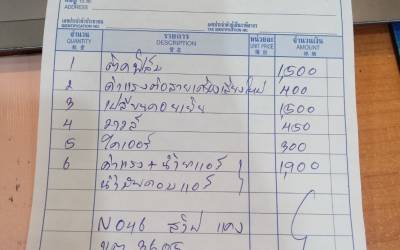 ที่อยู่
ADDRESS
เลขประจำตัวประชาชน เลขประจำตัวผู้เสียภาษีอากร
IDENTIFICATION NO. TAX IDENTIFICATION NO.
จำนวน รายการ หน่วยละ จำนวนเงิน
QUANTITY DESCRIPTION UNIT PRICE AMOUNT
1 ติดฟิล์ม 1,500
2 ค่าแรงต่อสายเครื่องเสียงใหม่ 400
3 เปลี่ยนคอยเย็น 1,500
4 วาวล์ 450
5 ไดเออร์ 300
6 ค่าแรง + น้ำยาแอร์ 1,900
น้ำมันคอมแอร์
แดง